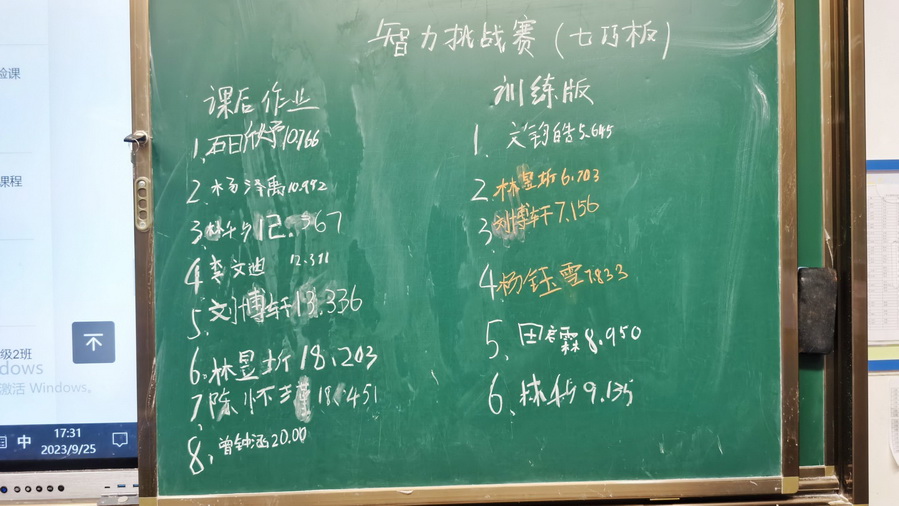 验课
课程
级2班
dows
激活 Windows。
中
17:31
2023/9/25
智力挑战赛(七巧板)
课后作业
1、石日欣予10.766
2、杨泽禹10.992
3、林 12. 367
4、 文迪 12.311
5、刘博轩13.336
6、林昱圻18.203
7、陈怀 18.451
8、曾钟涵20.00
训练版
1、文钧皓5.645
2 林昱圻6.703
3 刘博轩7.156
4、杨钰雪7.833
5、田 霖8.950
6、林 9.135